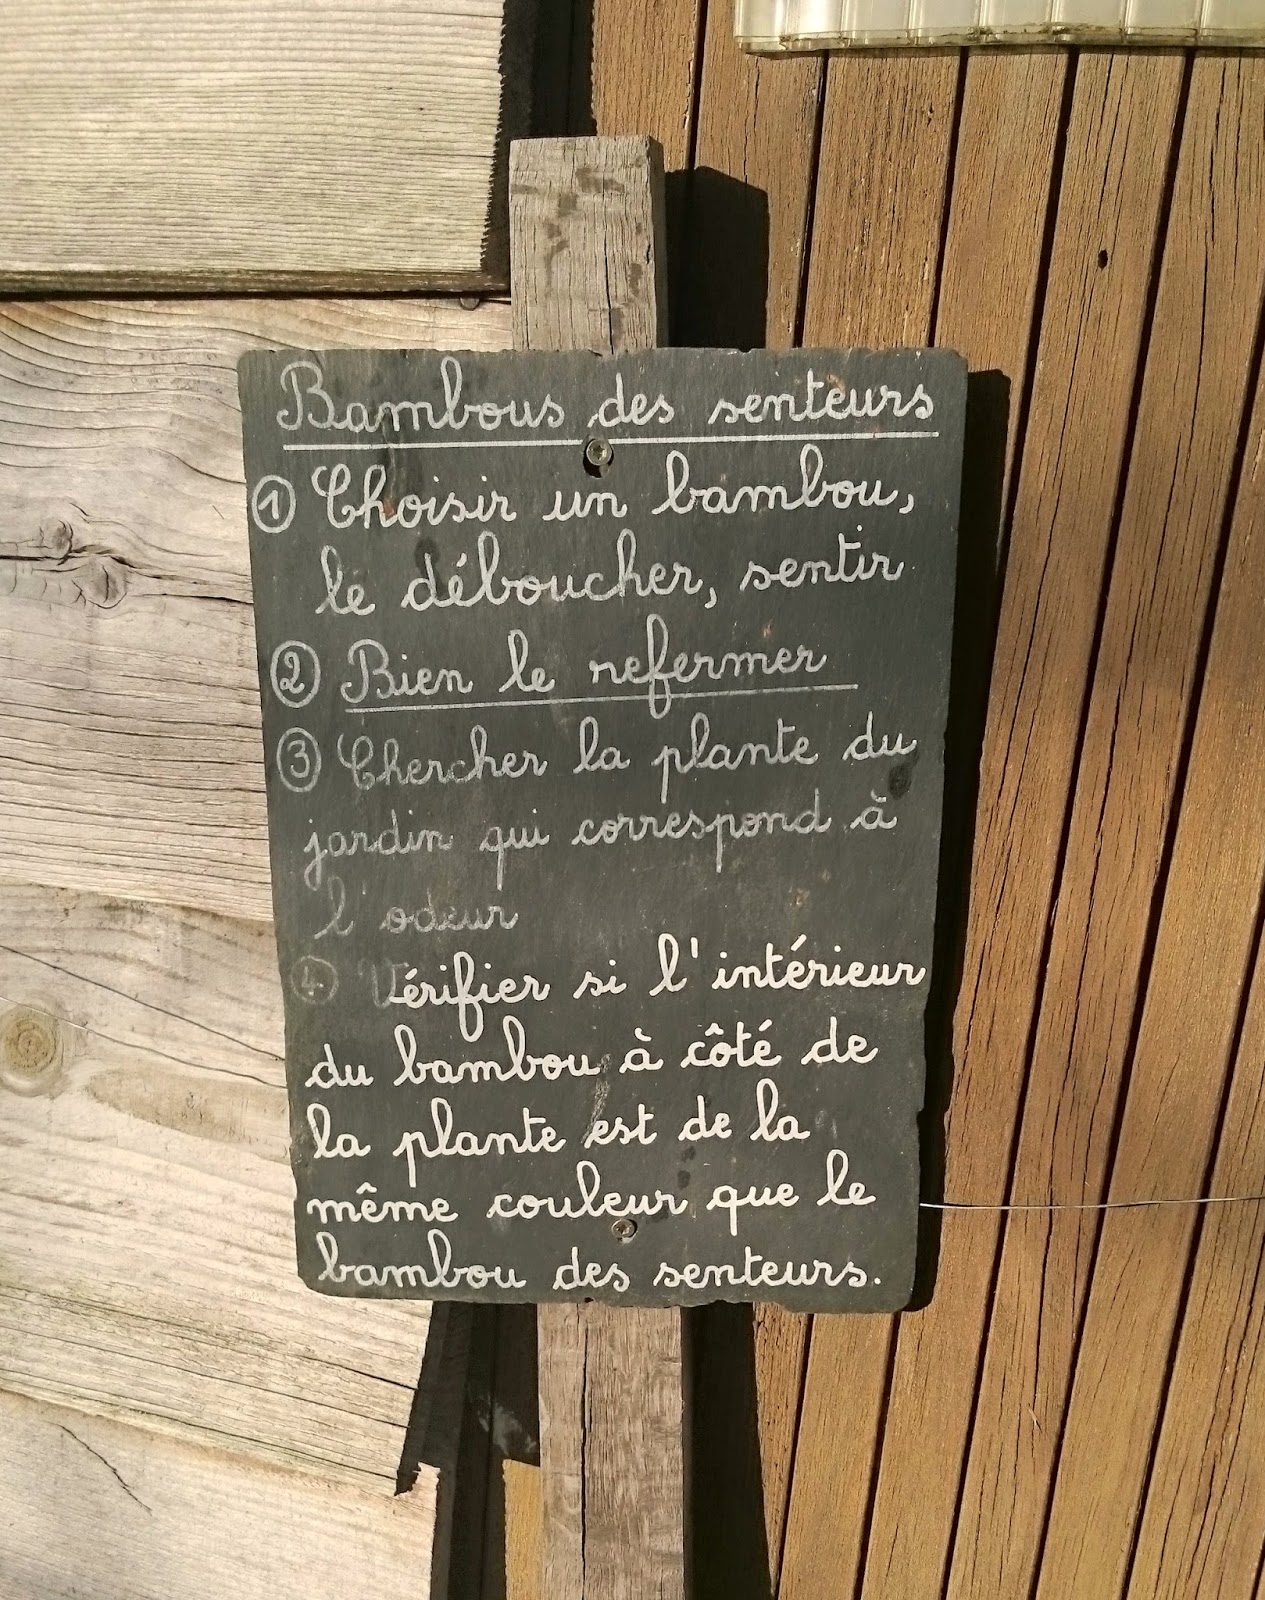 Bambous des senteurs
① Choisir un bambou,
le déboucher, sentir
② Bien le refermer
③ Chercher la plante du
jardin qui correspond à
l'odeur
④ Vérifier si l'intérieur
du bambou à côté de
la plante est de la
même couleur que le
bambou des senteurs.